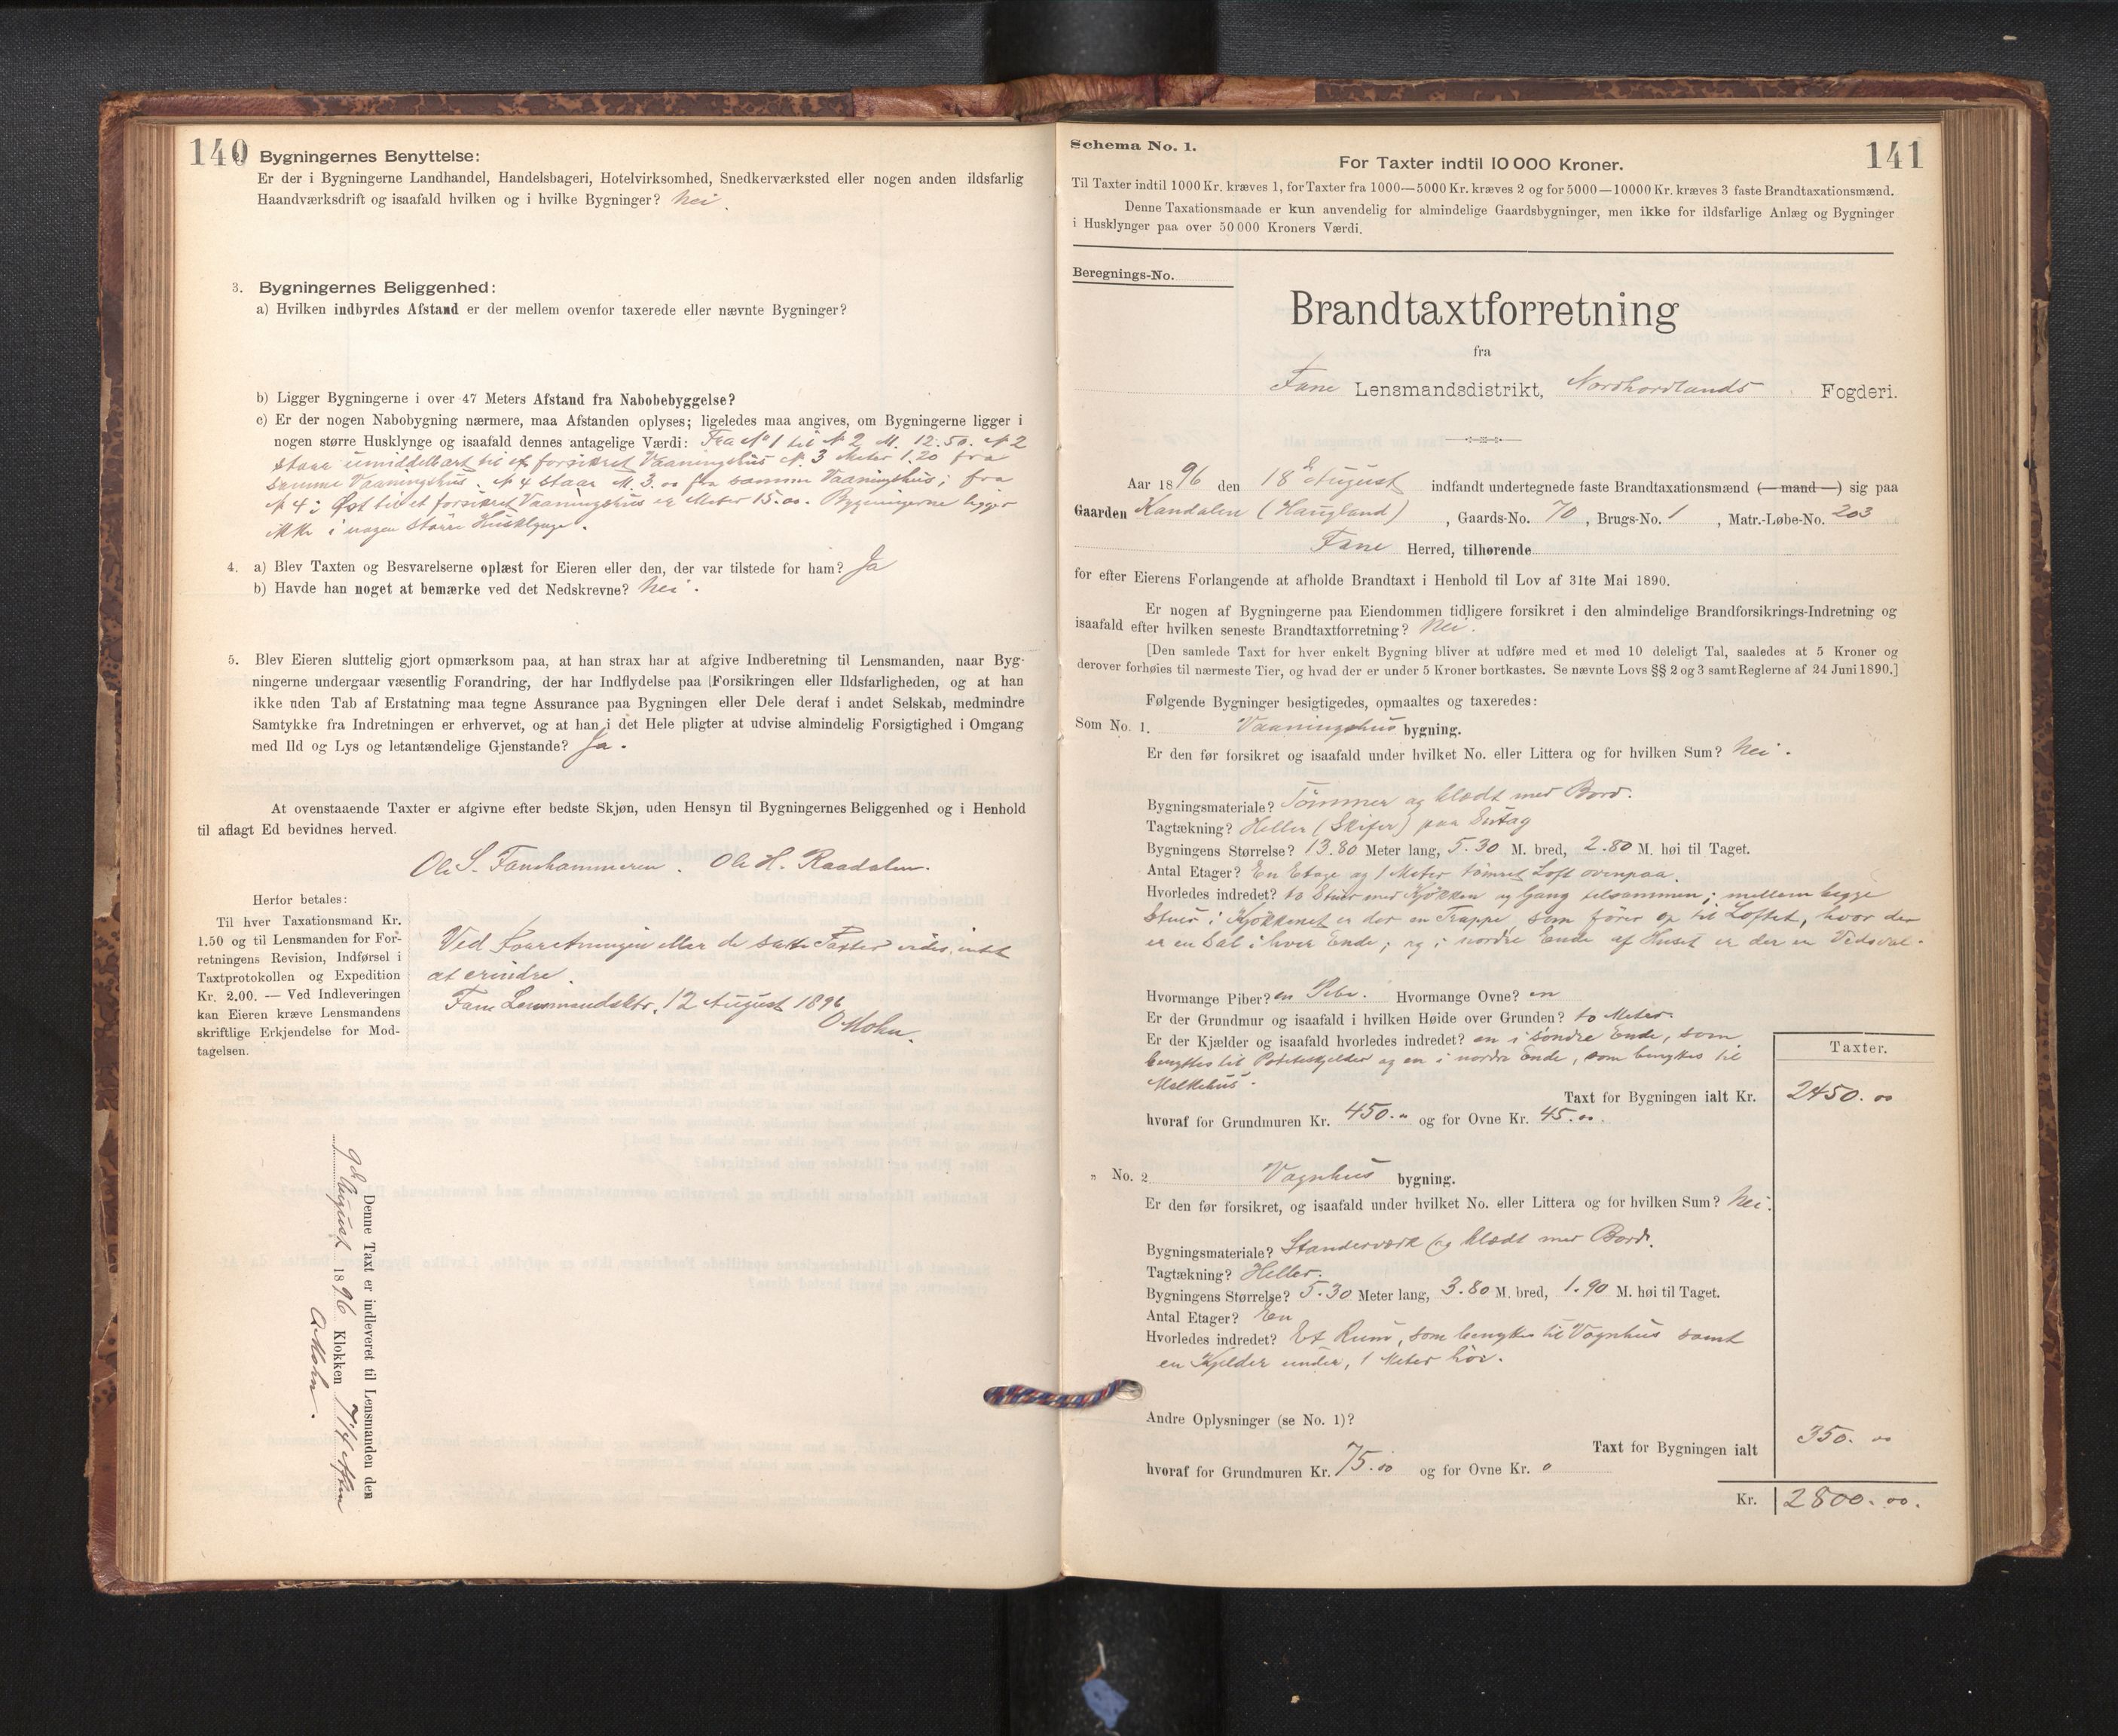 140 Bygningernes Benyttelse:
Er der i Bygningerne Landhandel, Handelsbageri, Hotelvirksomhed, Snedkerværksted eller nogen anden ildsfarlig
Haandværksdrift og isaafald hvilken og i hvilke Bygninger? Nei.
3. Bygningernes Beliggenhed:
a) Hvilken indbyrdes Afstand er der mellem ovenfor taxerede eller nævnte Bygninger?
b) Ligger Bygningerne i over 47 Meters Afstand fra Nabobebyggelse?
c) Er der nogen Nabobygning nærmere, maa Afstanden oplyses; ligeledes maa angives, om Bygningerne ligger i
nogen større Husklynge og isaafald dennes antagelige Værdi: Fra No 1 til N 2 M. 12.50. N 2
staar umiddelbart til et forsikret Vaaningshus N. 3 Meter 1.20 fra
samme Vaaningshus. N 4 staar M. 3.00 fra samme Vaaningshus; fra
N 4 i Øst til et forsikret Vaaningshus er Meter 15.00. Bygningerne ligger
ikke i nogen større Husklynge.
4. a) Blev Taxten og Besvarelserne oplæst for Eieren eller den, der var tilstede for ham? Ja
b) Havde han noget at bemærke ved det Nedskrevne? Nei.
5. Blev Eieren sluttelig gjort opmærksom paa, at han strax har at afgive Indberetning til Lensmanden, naar Byg-
ningerne undergaar væsentlig Forandring, der har Indflydelse paa Forsikringen eller Ildsfarligheden, og at han
ikke uden Tab af Erstatning maa tegne Assurance paa Bygningen eller Dele deraf i andet Selskab, medmindre
Samtykke fra Indretningen er erhvervet, og at han i det Hele pligter at udvise almindelig Forsigtighed i Omgang
med Ild og Lys og letantændelige Gjenstande? Ja.
At ovenstaaende Taxter er afgivne efter bedste Skjøn, uden Hensyn til Bygningernes Beliggenhed og i Henhold
til aflagt Ed bevidnes herved.
Ole S. Fanehammeren. Ole H. Raadalen.
Herfor betales:
Til hver Taxationsmand Kr.
1.50 og til Lensmanden for For-
retningens Revision, Indførsel i
Taxtprotokollen og Expedition
Kr. 2.00. — Ved Indleveringen
kan Eieren kræve Lensmandens
skriftlige Erkjendelse for Mod-
tagelsen.
Ved Forretningen eller de satte Taxter vides intet
at erindre.
Fane Lensmandsktr. 12 August 1896
O Mohn.
Denne Taxt er indleveret til Lensmanden den
9de August 1896 Klokken 7 1/4 Aften
O Mohn.
Schema No. 1. 141
For Taxter indtil 10 000 Kroner.
Til Taxter indtil 1000 Kr. kræves 1, for Taxter fra 1000—5000 Kr. kræves 2 og for 5000—10000 Kr. kræves 3 faste Brandtaxationsmænd.
Denne Taxationsmaade er kun anvendelig for almindelige Gaardsbygninger, men ikke for ildsfarlige Anlæg og Bygninger
i Husklynger paa over 50 000 Kroners Værdi.
Beregnings-No.
Brandtaxtforretning
fra
Fane Lensmandsdistrikt, Nordhordlands Fogderi.
Aar 1896 den 18de August indfandt undertegnede faste Brandtaxationsmænd (—mand—) sig paa
Gaarden Kandalen (Haugland), Gaards-No. 70, Brugs-No. 1, Matr.-Løbe-No. 203
Fane Herred, tilhørende
for efter Eierens Forlangende at afholde Brandtaxt i Henhold til Lov af 31te Mai 1890.
Er nogen af Bygningerne paa Eiendommen tidligere forsikret i den almindelige Brandforsikrings-Indretning og
isaafald efter hvilken seneste Brandtaxtforretning? Nei.
[Den samlede Taxt for hver enkelt Bygning bliver at udføre med et med 10 deleligt Tal, saaledes at 5 Kroner og
derover forhøies til nærmeste Tier, og hvad der er under 5 Kroner bortkastes. Se nævnte Lovs §§ 2 og 3 samt Reglerne af 24 Juni 1890.]
Følgende Bygninger besigtigedes, opmaaltes og taxeredes:
Som No. 1. Vaaningshus bygning.
Er den før forsikret og isaafald under hvilket No. eller Littera og for hvilken Sum? Nei.
Bygningsmateriale? Tömmer og klædt med Bord.
Tagtækning? Heller (Skifer) paa
Bygningens Størrelse? 13.80 Meter lang, 5.30 M. bred, 2.80 M. høi til Taget.
Antal Etager? En Etage og 1 Meter tømret Loft ovenpaa.
Hvorledes indredet? to Stuer med Kjökken og Gang tilsammen; mellem begge
Stuer i Kjökkenet er der en Trappe som förer op til Loftet, hvor der
er en Sal i hver Ende; og i nordre Ende af Huset er der en Vedsval.
Hvormange Piber? en Pibe. Hvormange Ovne? en
Er der Grundmur og isaafald i hvilken Høide over Grunden? to Meter.
Er der Kjælder og isaafald hvorledes indredet? en i söndre Ende, som
benyttes til Potetkjelder og en i nordre Ende, som benyttes til
Melkehus.
Taxter.
Taxt for Bygningen ialt Kr. 2450.00
hvoraf for Grundmuren Kr. 450.00 og for Ovne Kr. 45.00.
„ No. 2 Vognhus bygning.
Er den før forsikret, og isaafald under hvilket No. eller Littera og for hvilken Sum? Nei.
Bygningsmateriale? Standerværk og klædt med Bord.
Tagtækning? Heller.
Bygningens Størrelse? 5.30 Meter lang, 3.80 M. bred, 1.90 M. høi til Taget.
Antal Etager? En
Hvorledes indredet? Et Rum, som benyttes til Vognhus samt
en Kjelder under, 1 Meter höi.
Andre Oplysninger (se No. 1)?
Taxt for Bygningen ialt 350.00
hvoraf for Grundmuren Kr. 75.00 og for Ovne Kr. 0
Kr. 2800.00.